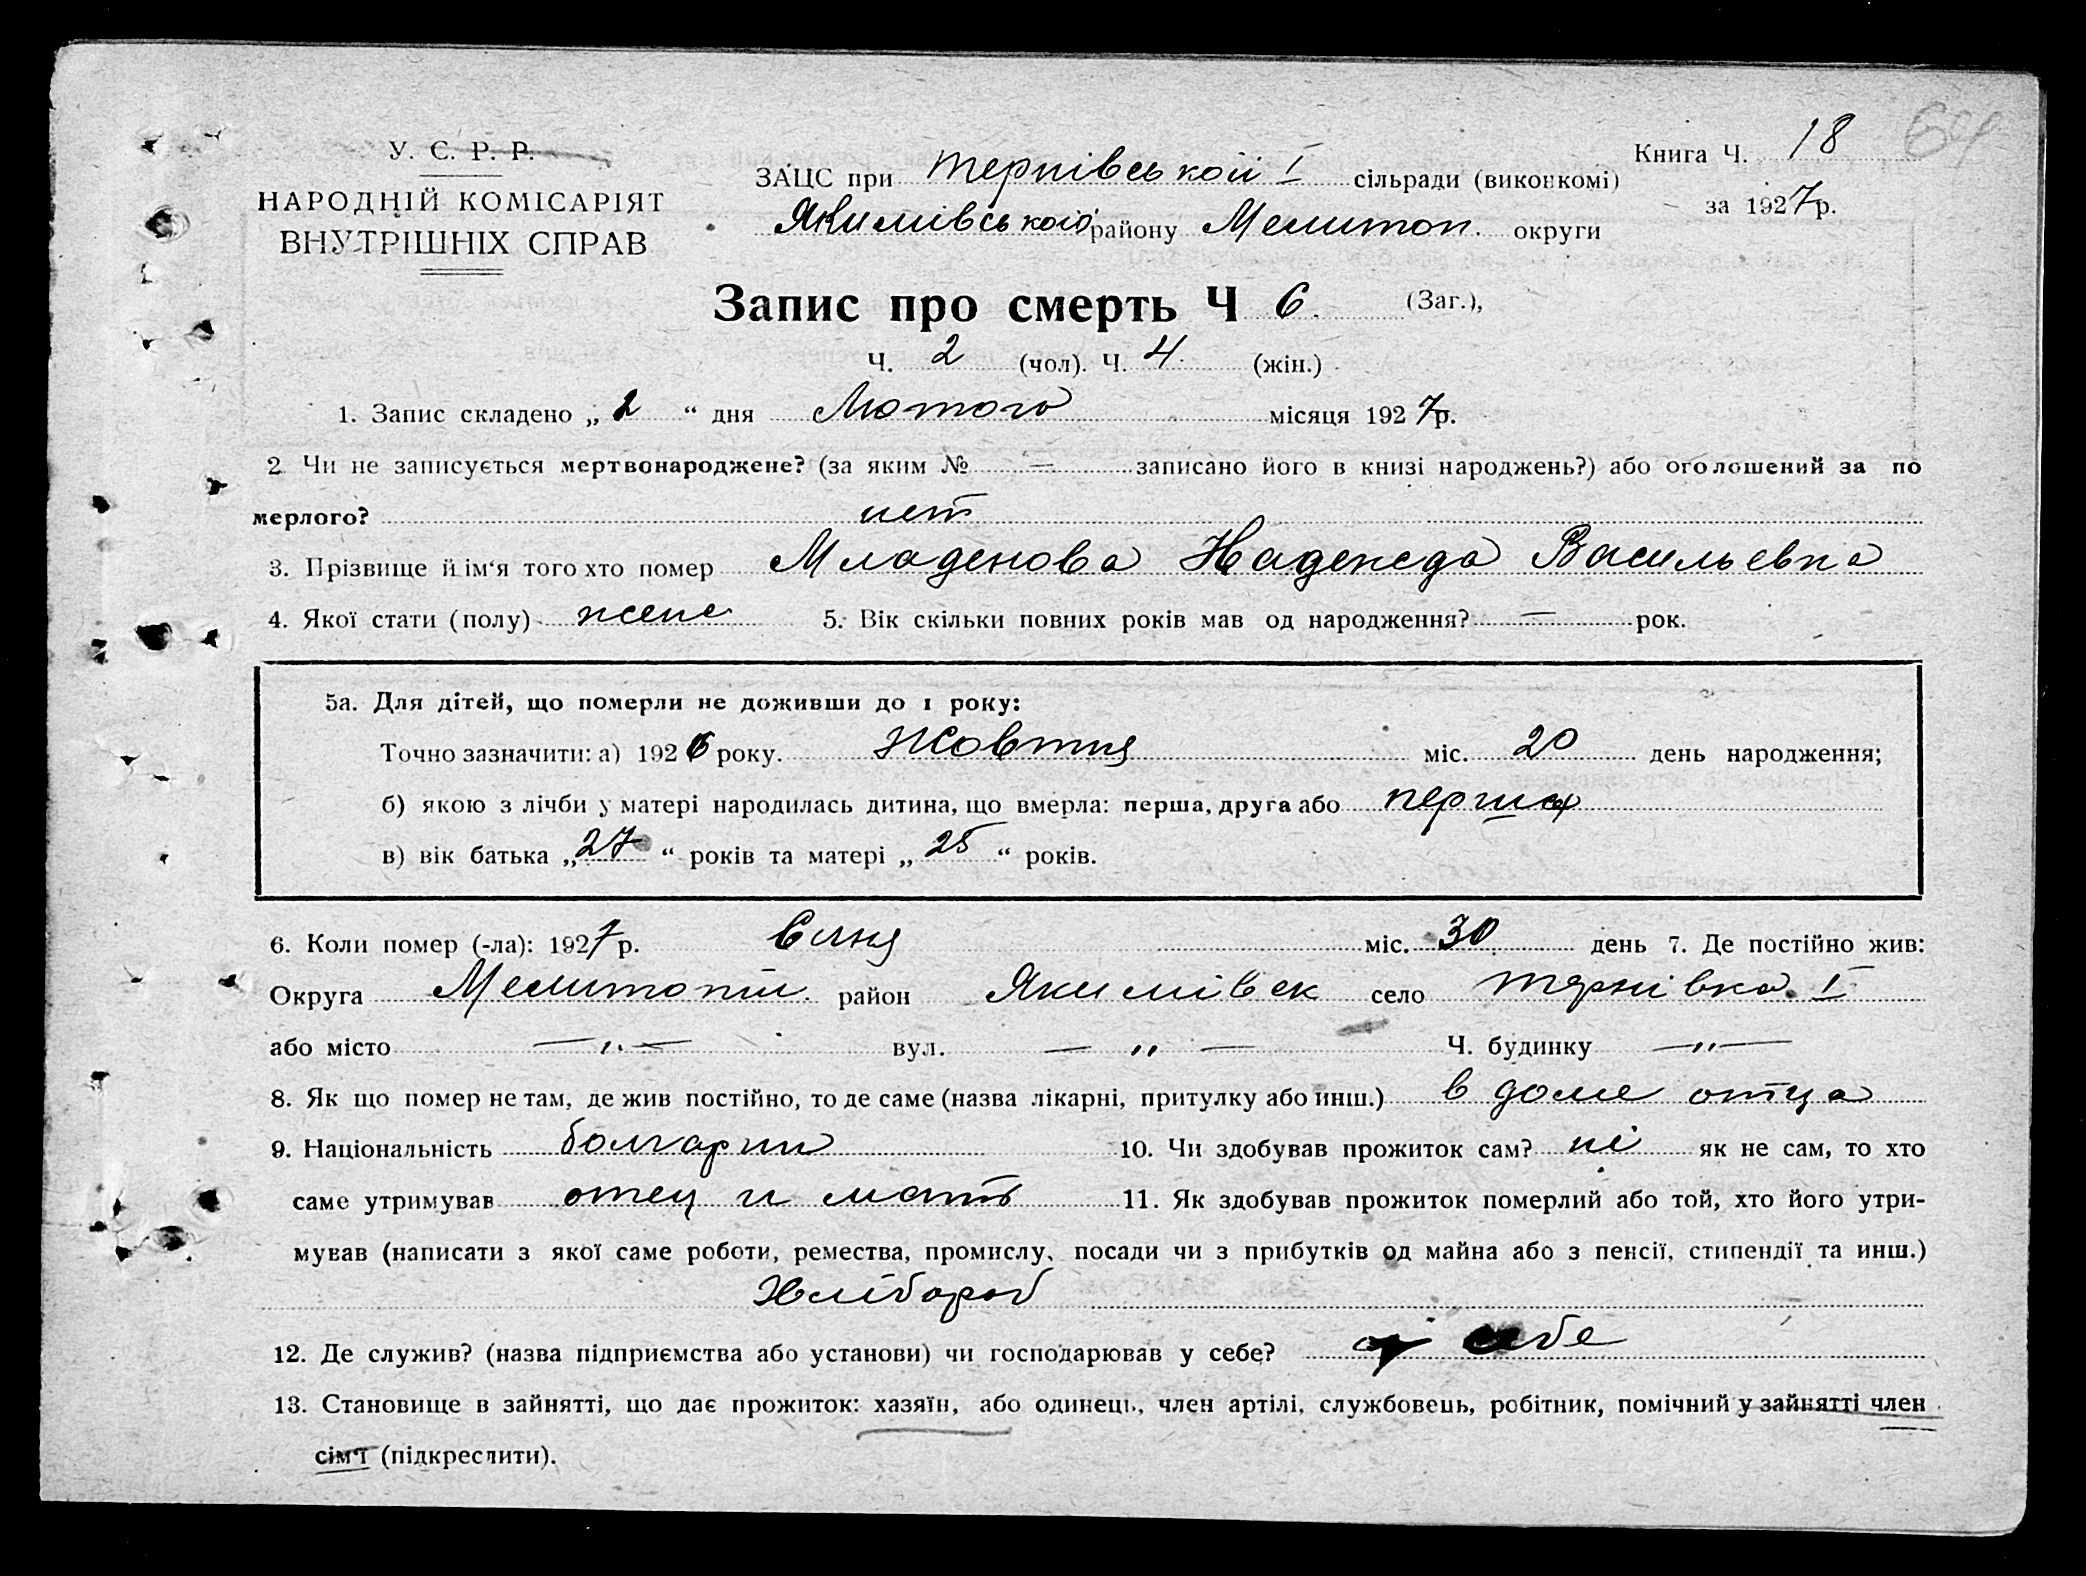 У. С. Р. Р.
НАРОДНІЙ КОМІСАРІЯТ
ВНУТРІШНІХ СПРАВ
Книга Ч. 18 64
за 1927 р.
ЗАЦС при Тернівській I сільради (виконкомі)
Якимівського району Мелитоп. округи
Запис про смерть Ч 6. (Заг.),
Ч. 2 (чол). Ч. 4. (жін.)
1. Запис складено „ 2 “ дня Лютого місяця 1927 р.
2 Чи не записується мертвонароджене? (за яким № — записано його в книзі народжень?) або оголошений за по
мерлого? нет
3. Прізвище й ім‘я того хто помер Младенова Надежда Васильевна
4. Якої стати (полу) женс 5. Вік скільки повних років мав од народження? — рок.
5а. Для дітей, що померли не доживши до 1 року:
Точно зазначити: а) 1926 року. Жовтня міс. 20 день народження;
б) якою з лічби у матері народилась дитина, що вмерла: перша, друга або перша
в) вік батька „ 27 “ років та матері „ 25 “ років.
6. Коли помер (-ла): 1927 р. Січня міс. 30 день 7. Де постійно жив:
Округа Мелитопіл. район Якимівск село Тернівка I
або місто —„— вул. — „ — Ч. будинку —„—
8. Як що помер не там, де жив постійно, то де саме (назва лікарні, притулку або инш.) в доме отца
9. Національність болгарин 10. Чи здобував прожиток сам? ні як не сам, то хто
саме утримував отец и мать 11. Як здобував прожиток померлий або той, хто його утри-
мував (написати з якої саме роботи, ремества, промислу, посади чи з прибутків од майна або з пенсії, стипендії та инш.)
Хлібороб
12. Де служив? (назва підприємства або установи) чи господарював у себе? у себе
13. Становище в зайнятті, що дає прожиток: хазяїн, або одинець, член артілі, службовець, робітник, помічний у зайнятті член
сім'ї (підкреслити).